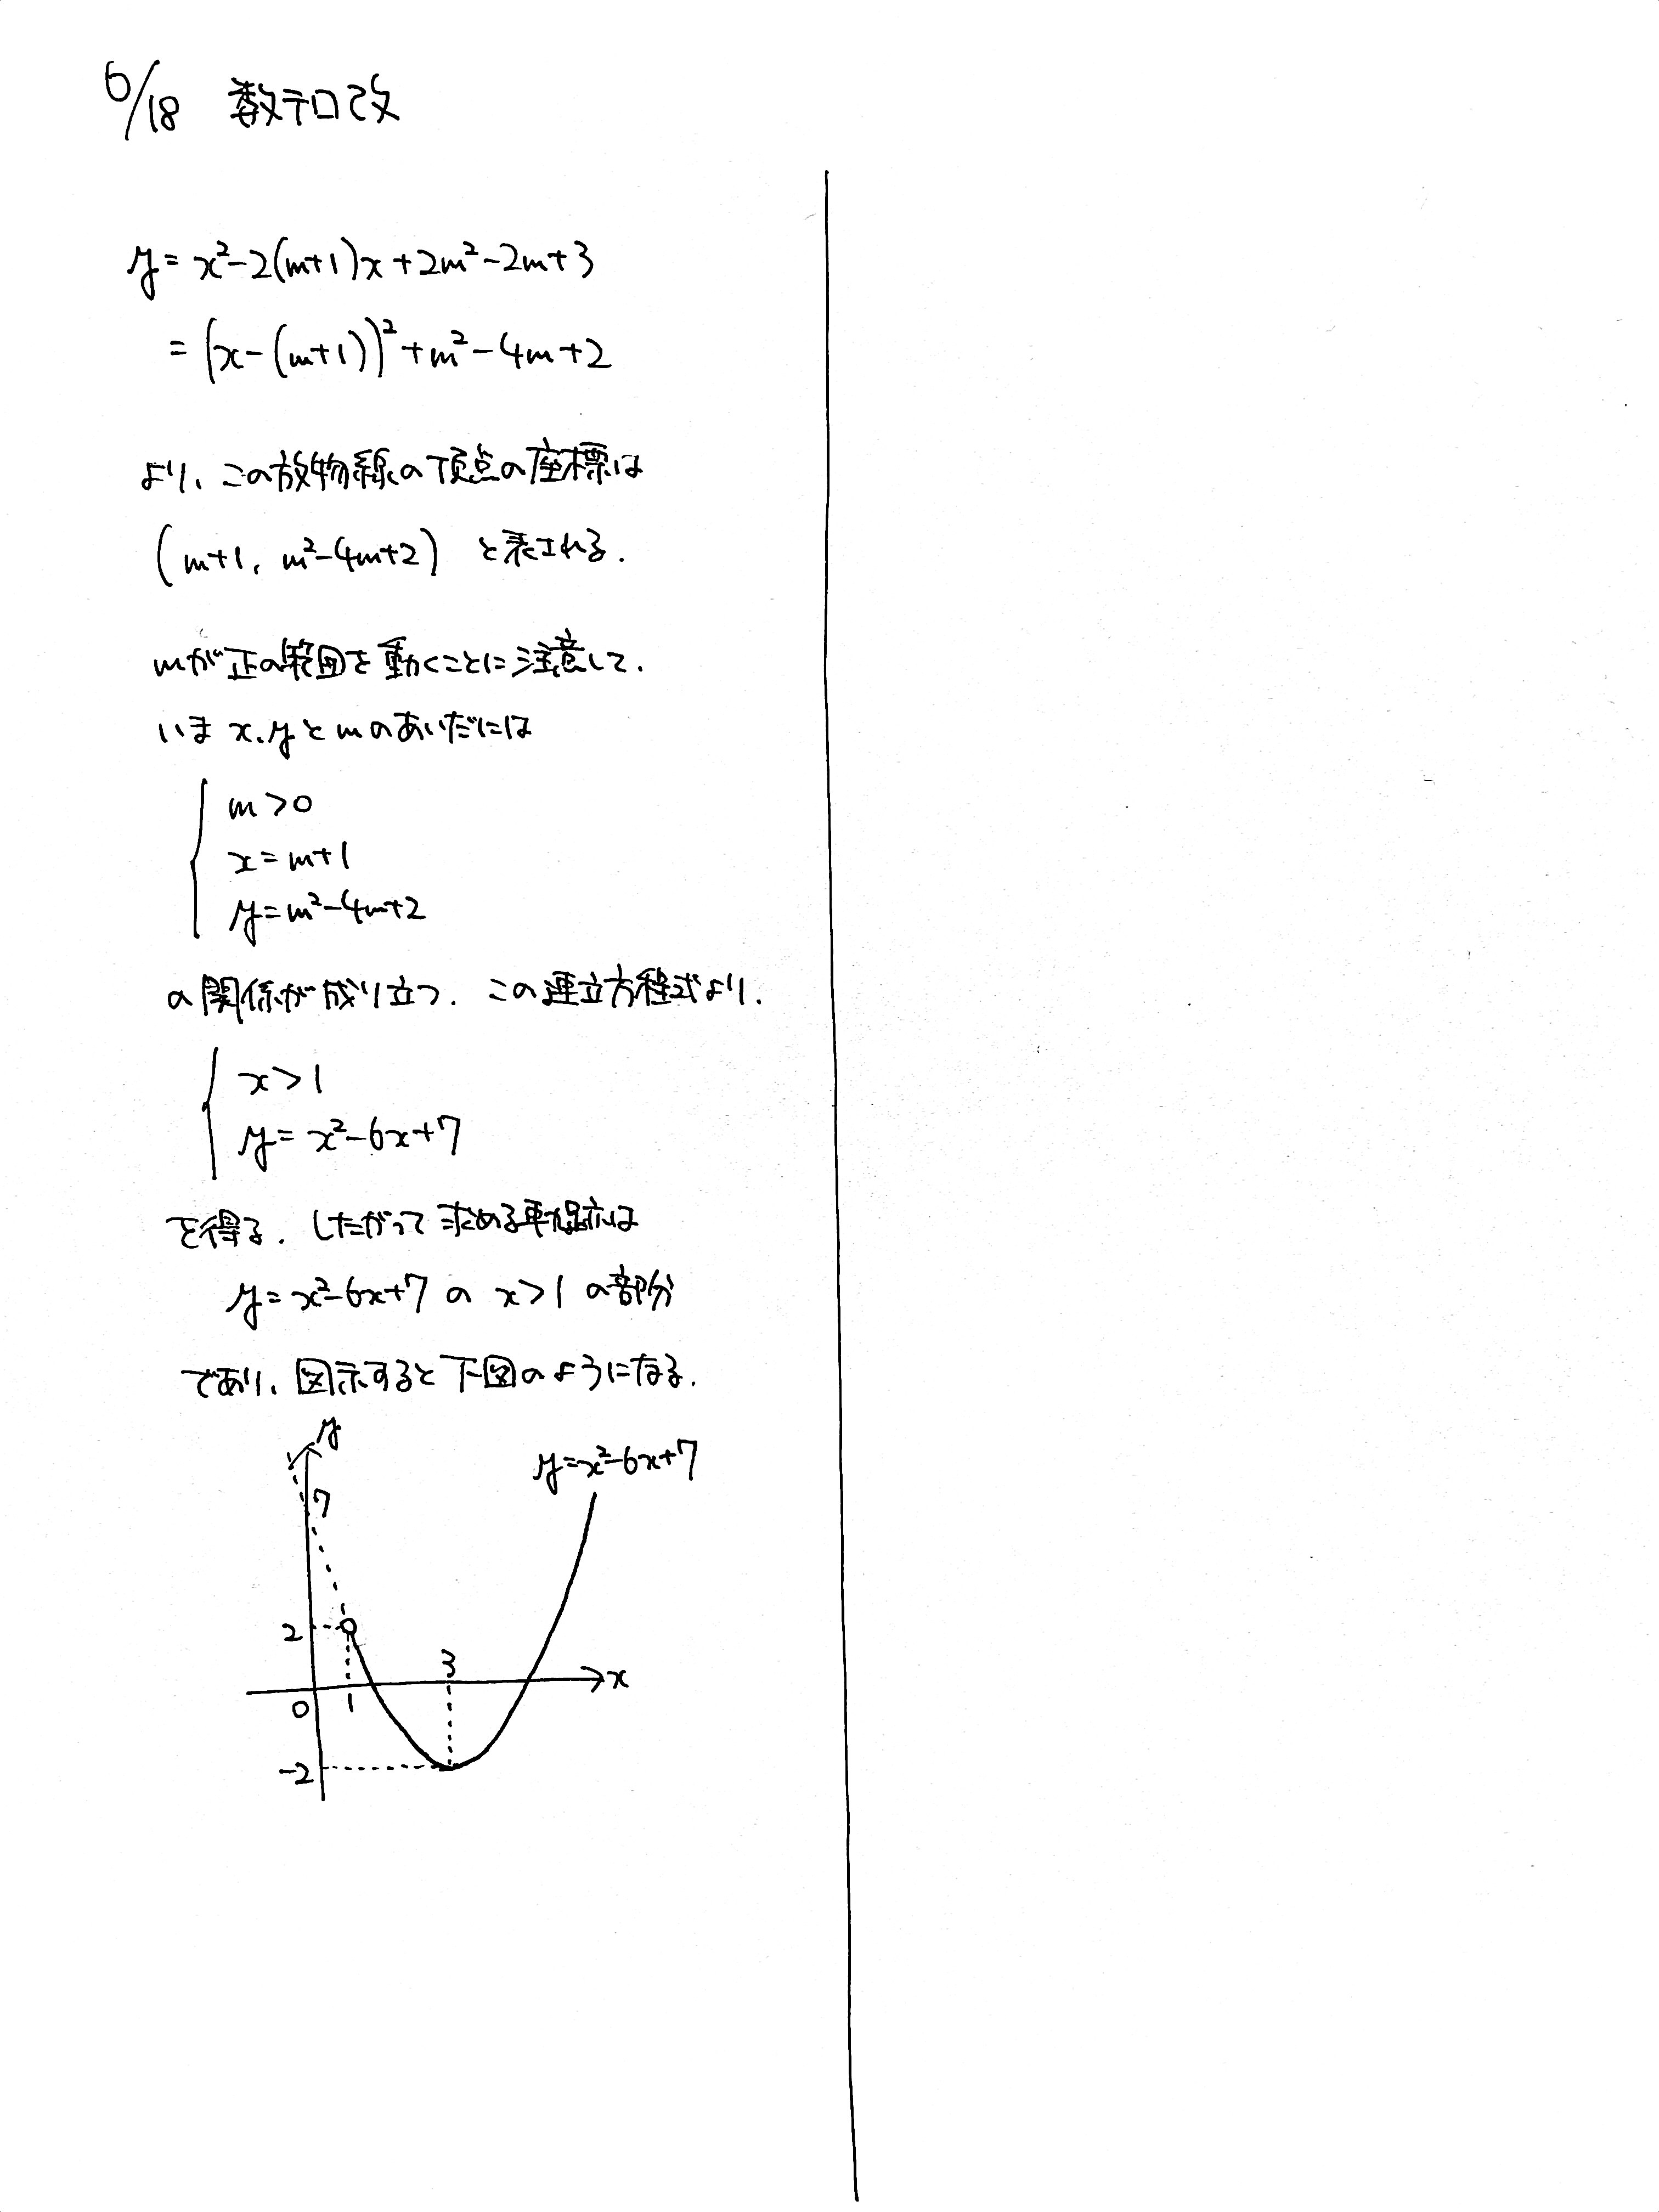 6/18 数テロ改
y = x² - 2(m+1)x + 2m² - 2m + 3
= (x - (m+1))² + m² - 4m + 2
より、この放物線の頂点の座標は
(m+1, m² - 4m + 2) と表される.
mが正の範囲を動くことに注意して.
いま x, y と m のあいだには
m > 0
x = m+1
y = m² - 4m + 2
の関係が成り立つ. この連立方程式より.
x > 1
y = x² - 6x + 7
を得る. したがって求める軌跡は
y = x² - 6x + 7 の x > 1 の部分
であり、図示すると下図のようになる.
y
y = x² - 6x + 7
7
2
3
x
0
1
-2